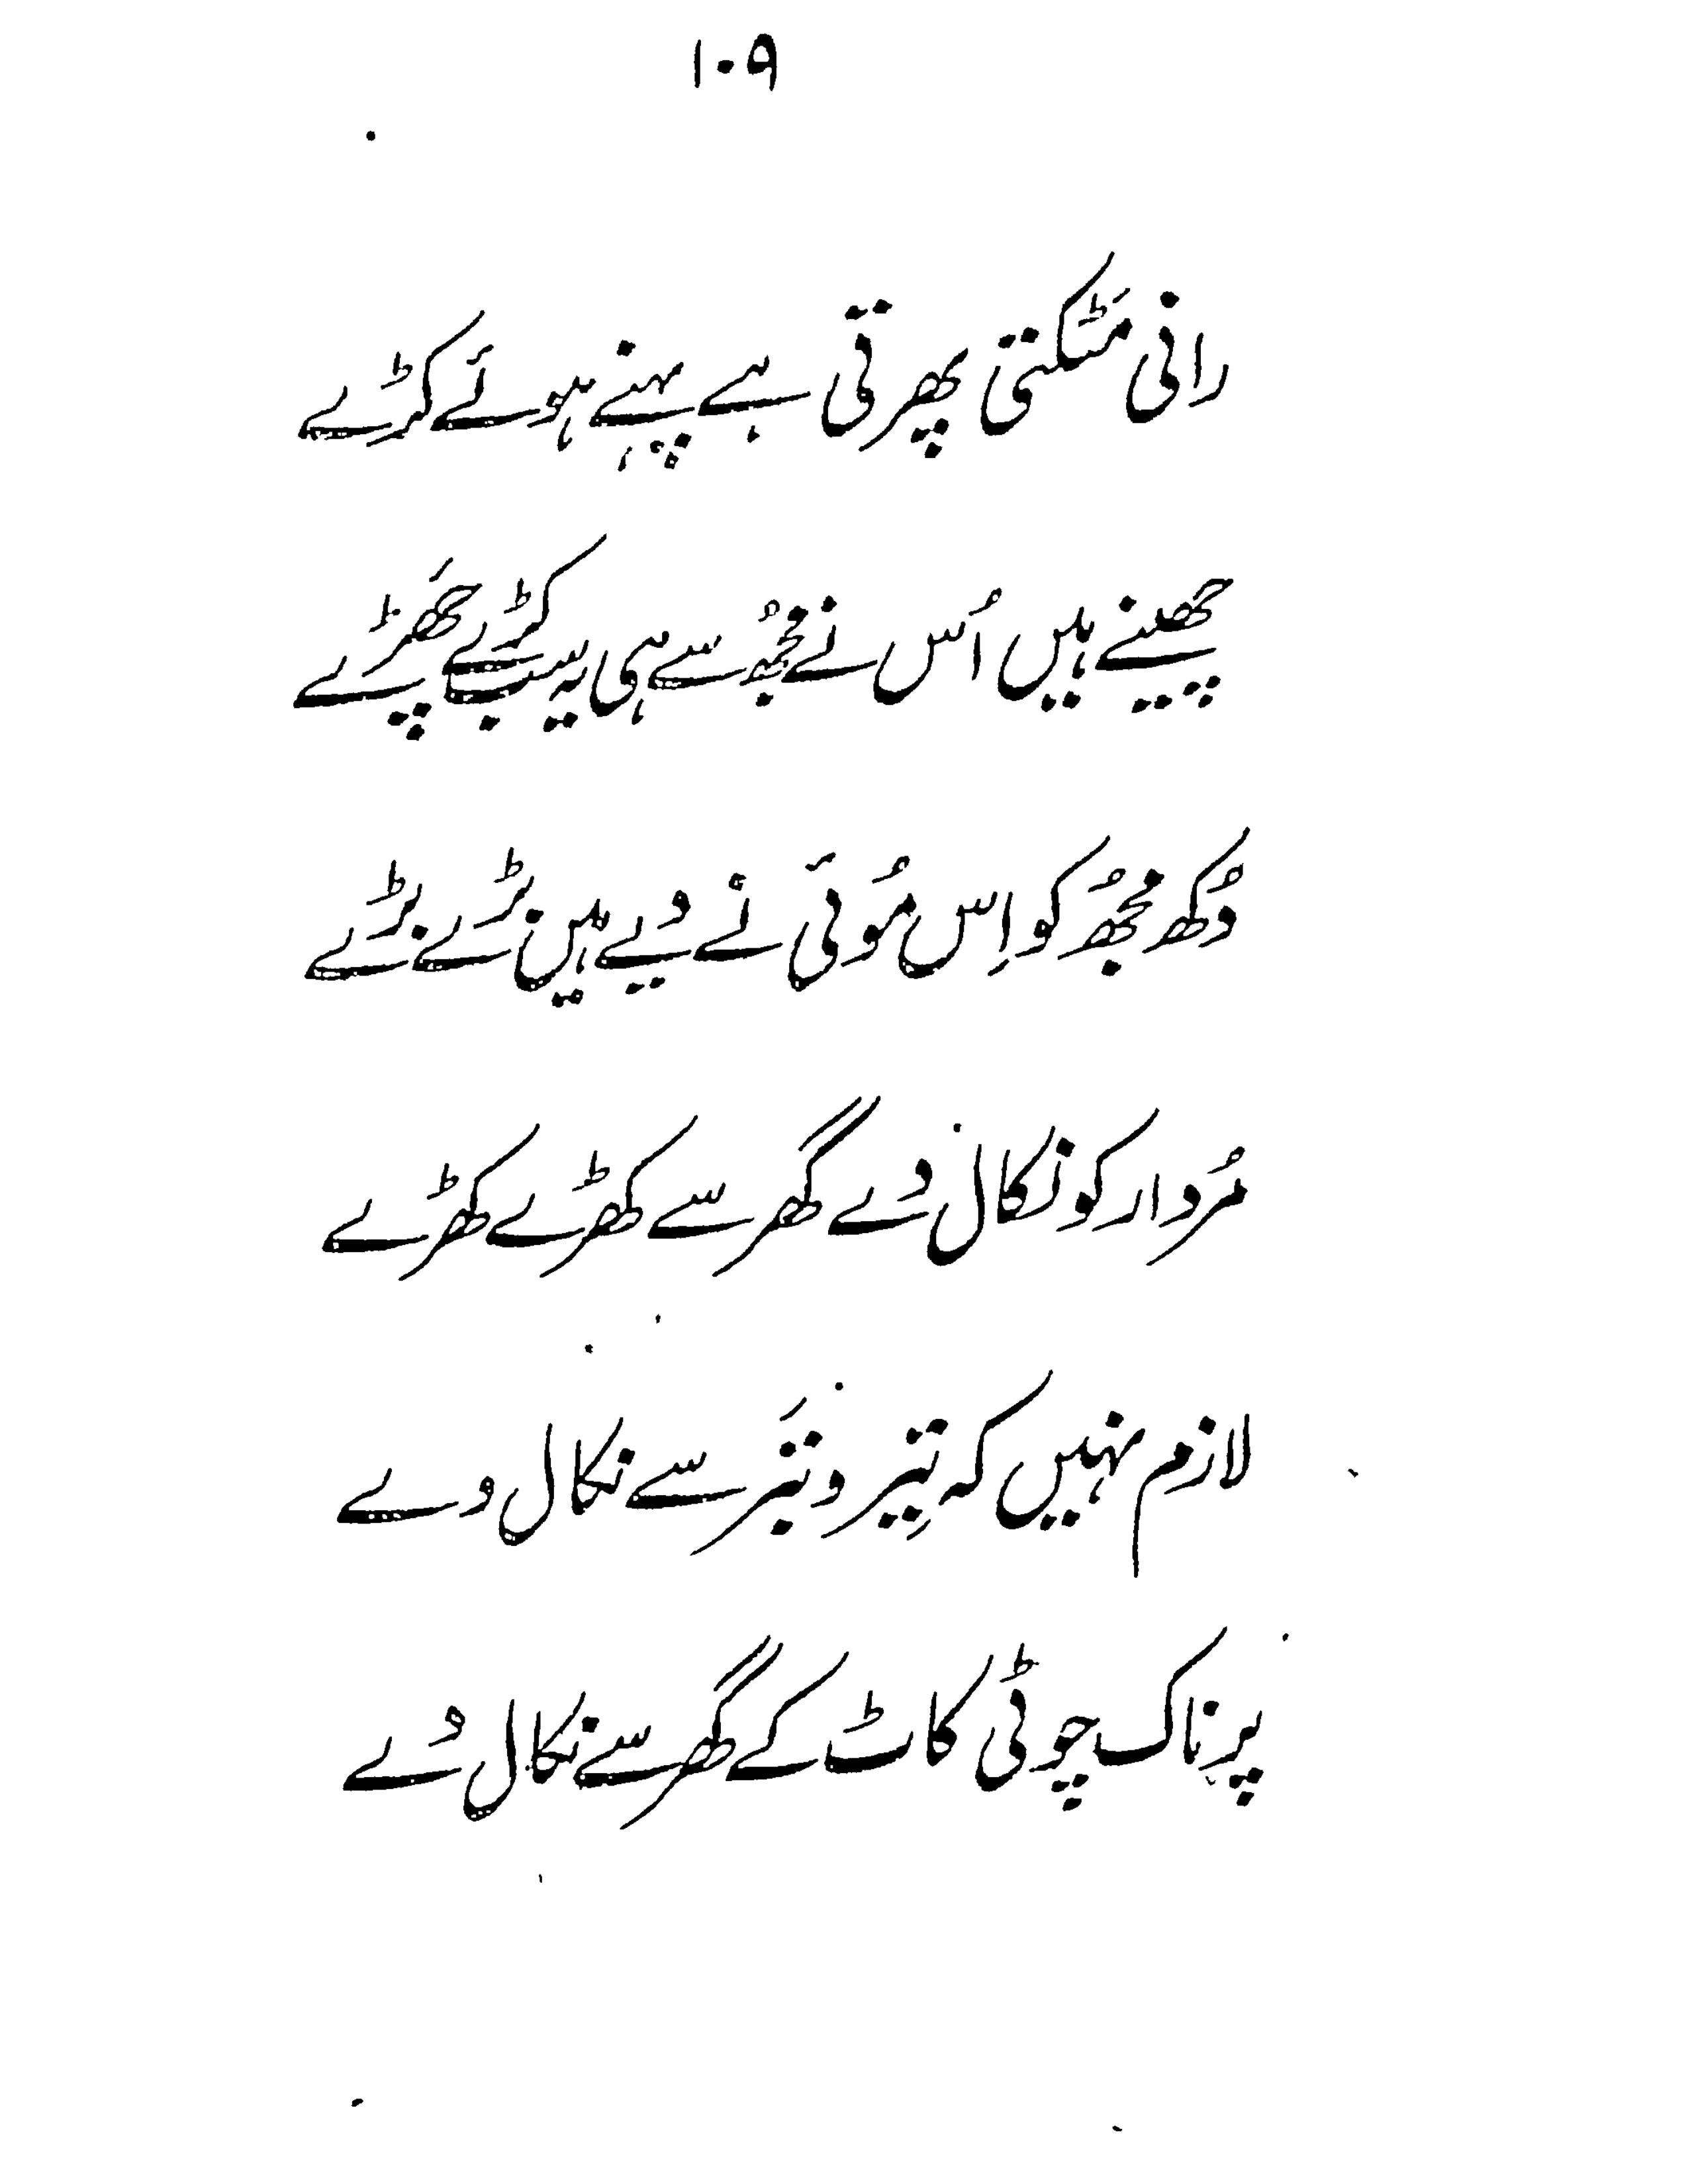 ۱۰۹
رانی مَٹکتی پھرتی ہے پہنے ہوئے کڑے
چھینے ہیں اُس نے مجھُ سے ہی یہ سب کڑے چھَڑے
دُکھ مجھُ کو اِس مُوئی نے دیے ہیں بڑے بڑے
مُردار کو نکال دے گھر سے کھڑے کھڑے
لازم نہیں کہ تِیر و تبَر سے نکال دے
پر ناک چوٹی کاٹ کے گھر سے نکال دے